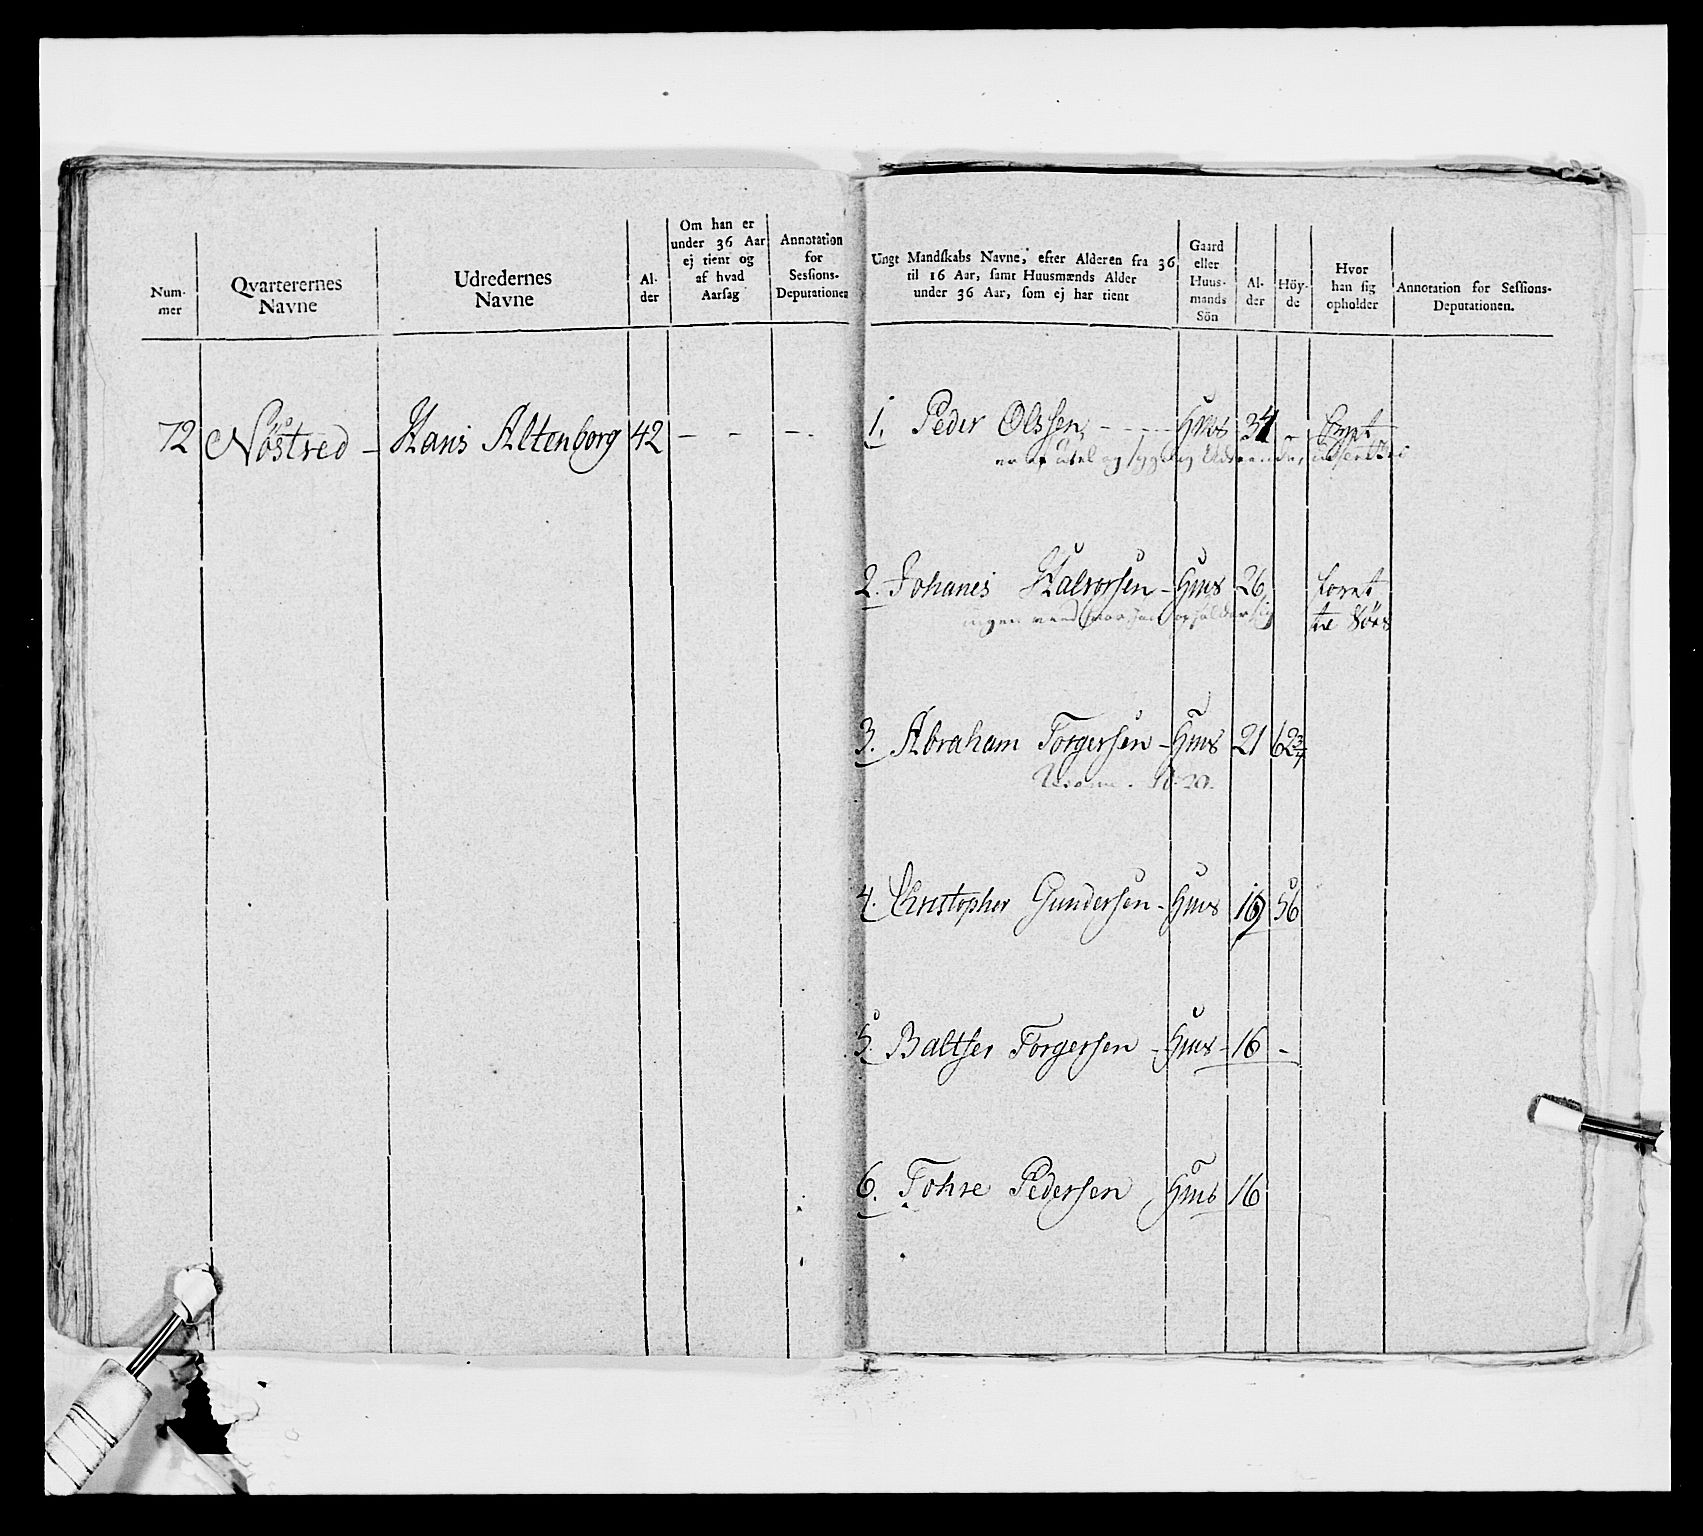 Num-
mer
Qvarterernes
Navne
Udredernes
Navne
Al-
der
Om han er
under 36 Aar
ej tient og
af hvad
Aarsag
Annotation
for
Sessions-
Deputationen
Ungt Mandskabs Navne, efter Alderen fra 36
til 16 Aar, samt Huusmænds Alder
under 36 Aar, som ej har tient
Gaard
eller
Huus-
mands
Sön
Al-
der
Höy-
de
Hvor
han sig
opholder
Annotation for Sessions-
Deputationen.
72 Nöstved - Hans Altenborg 42 - - -.
1. Peder Olssen - Hms 34 -
2. Johanes Halvorsen - Hms 26
til Söes
3. Abraham Torgersen - Hms 21 62 3/4
4. Christopher Gundersen - Hms 56
5. Baltser Torgersen - Hms - 16 -
6. Tohre Pedersen Hms 16